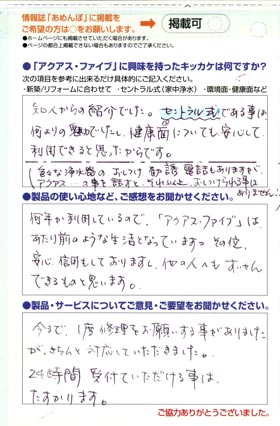 情報誌「あめんぼ」に掲載を
ご希望の方は○をお願いします。
●ホームページにも掲載させていただく場合があります。
●ページの都合上掲載できない場合もありますのでご了承ください。
掲載可
●「アクアス・ファイブ」に興味を持ったキッカケは何ですか?
次の項目を参考に出来るだけ具体的にご記入ください。
・新築/リフォームに合わせて ・セントラル式(家中浄水) ・環境面・健康面など
知人からの紹介でした。セントラル式である事は
何よりの魅力でしたし、健康面についても安心して
利用できると思ったからです。
(色々な浄水器のおしつけ勧誘電話もありますが、
アクアス…の事を話すと、それ以上、おしつけられる事は
ありません)
●製品の使い心地など、ご感想をお聞かせください。
何年か利用しているので、「アクアス・ファイブ」は
あたり前のような生活となっています。その位、
安心、信用もしておりますし、他の人にもすいせん
できるものと思います。
●製品・サービスについてご意見・ご要望をお聞かせください。
今まで、1度修理をお願いする事がありました
が、きちんと対応していただきました。
24時間受付ていただける事は、
たすかります。
ご協力ありがとうございました。